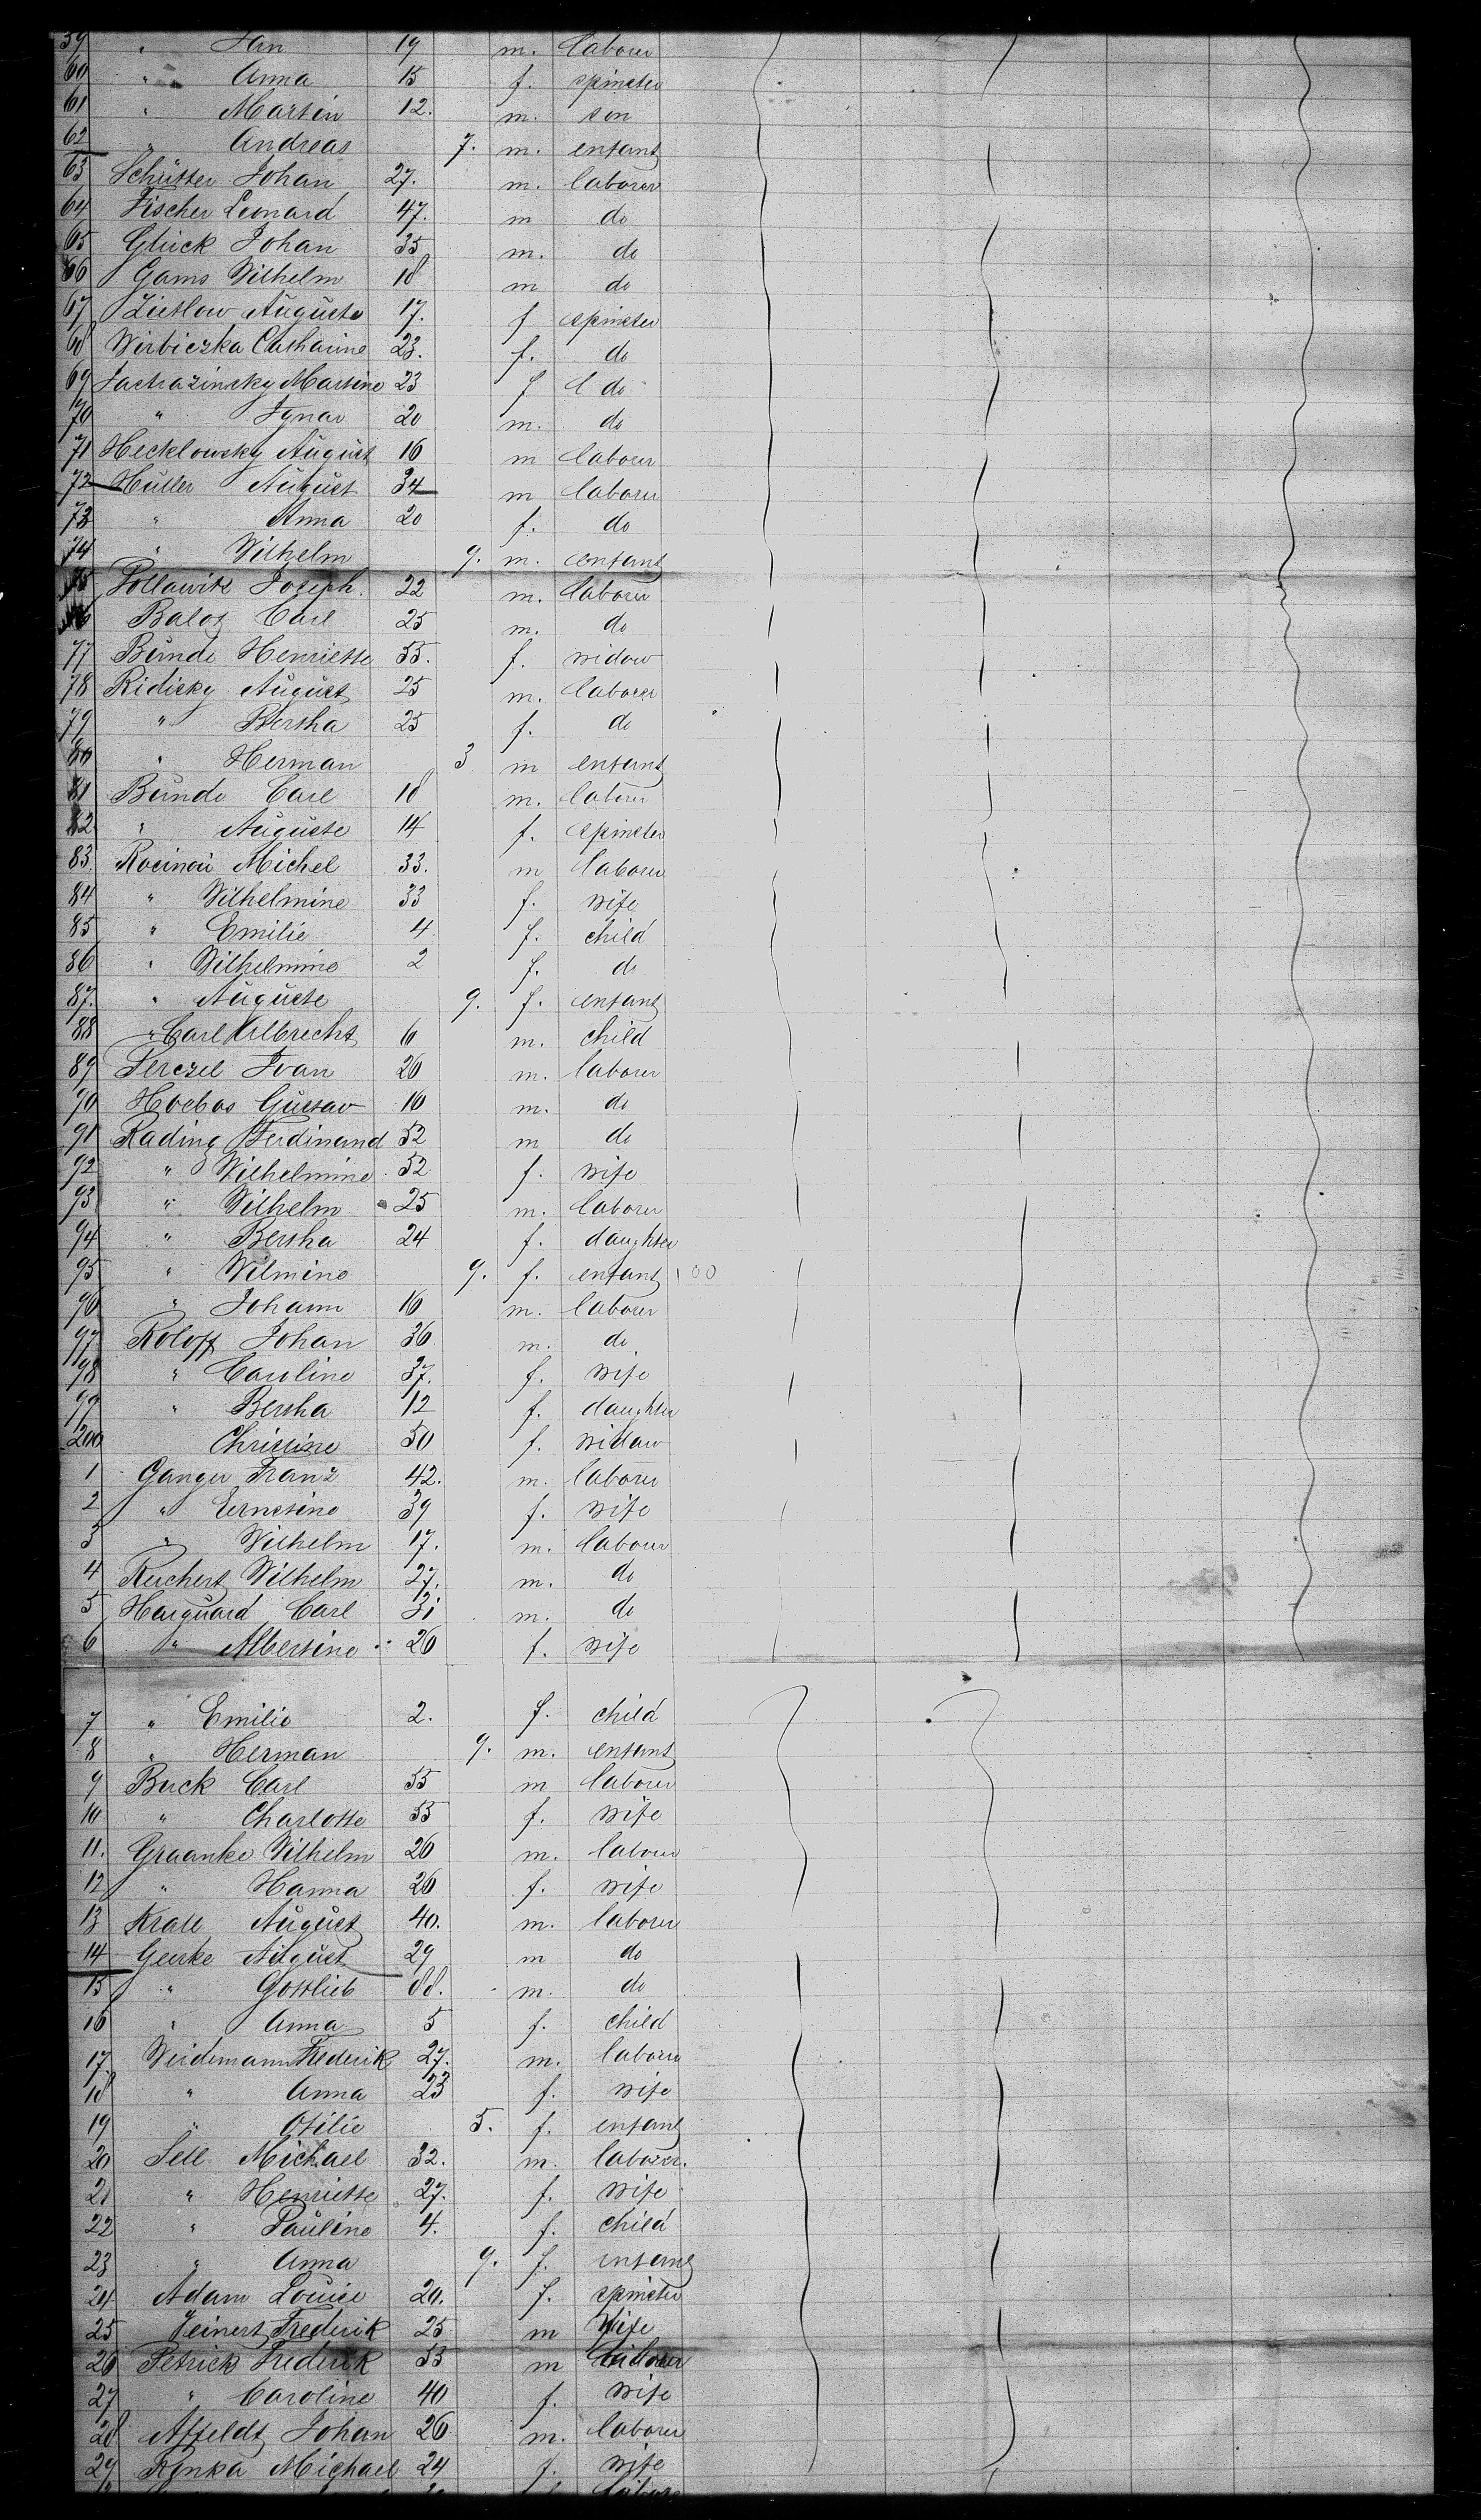 59 " Jan 19 m. laborer
60 " Anna 15 f. spinster
61 " Martin 12. m. son
62 " Andreas 7. m. enfant
63 Schütter Johan 27. m. laborer
64 Fischer Leonard 47. m do
65 Glück Johan 35 m. do
66 Gams Wilhelm 18 m do
67 Zietlow Auguste 17. f spinster
68 Wirbiczka Catharine 23. f. do
69 Martine 23 f do
70 " Ignav 20 m. do
71 Hecklowsky August 16 m laborer
72 Hüller August 34 m laborer
73 " Anna 20 f. do
74 " Wilhelm 9. m. enfant
75 Pollawitz Joseph. 22 m. laborer
76 Balog Carl 25 m. do
77 Bünde Henriette 55. f. widow
78 Ridicky August 25 m. laborer
79 " Bertha 25 f. do
80 " Herman 3 m enfant
81 Bünde Carl 18 m. laborer
82 " Auguste 14 f. spinster
83. Michel 33. m laborer
84 " Wilhelmine 33 f. wife
85 " Emilie 4 f. child
86 " Wilhelmine 2 f. do
87. " Auguste 9. f. enfant
88 " Carl Albrecht 6 m. child
89 Perczel Ivan 26 m. laborer
90 Hoebos Gustav 16 m. do
91 Rading Ferdinand 52 m do
92 " Wilhelmine 52 f. wife
93 " Wilhelm 25 m. laborer
94 " Bertha 24 f. daughter
95 " Wilmine 9. f. enfant
96 " Johann 16 m. laborer
97 Roloff Johan 36 m. do
98 " Caroline 37. f. wife
99 " Bertha 12 f. daughter
200 Christine 50 f. widow
1 Ganger Franz 42. m. laborer
2 " Ernestine 39 f. wife
3 " Wilhelm 17. m. laborer
4 Ruchert Wilhelm 27. m. do
5 Harguard Carl 31 m. do
6 " Albertine 26 f. wife
7 " Emilie 2. f. child
8 " Herman 9. m. enfant
9 Buck Carl 55 m laborer
10 " Charlotte 55 f. wife
11. Graanke Wilhelm 26 m. laborer
12 " Hanna 26 f. wife
13 Krall August 40. m. laborer
14 Geske August 29 m do
15 " Gottlieb 88. m. do
16 " Anna 5 f. child
17. Weidemann Frederik 27. m. laborer
18 " Anna 23 f. wife
19 " Otilie 5. f. enfant
20 Sell Michael 32. m. laborer.
21 " Henriette 27. f. wife
22 " Pauline 4. f. child
23 " Anna 9. f. enfant
24 Adam Louise 20. f. spinster
25 Frederik 25 m wife
26 Petrick Frederik 53 m laborer
27 " Caroline 40 f. wife
28 Affeldt Johan 26 m. laborer
29 Michael 24 f. wife